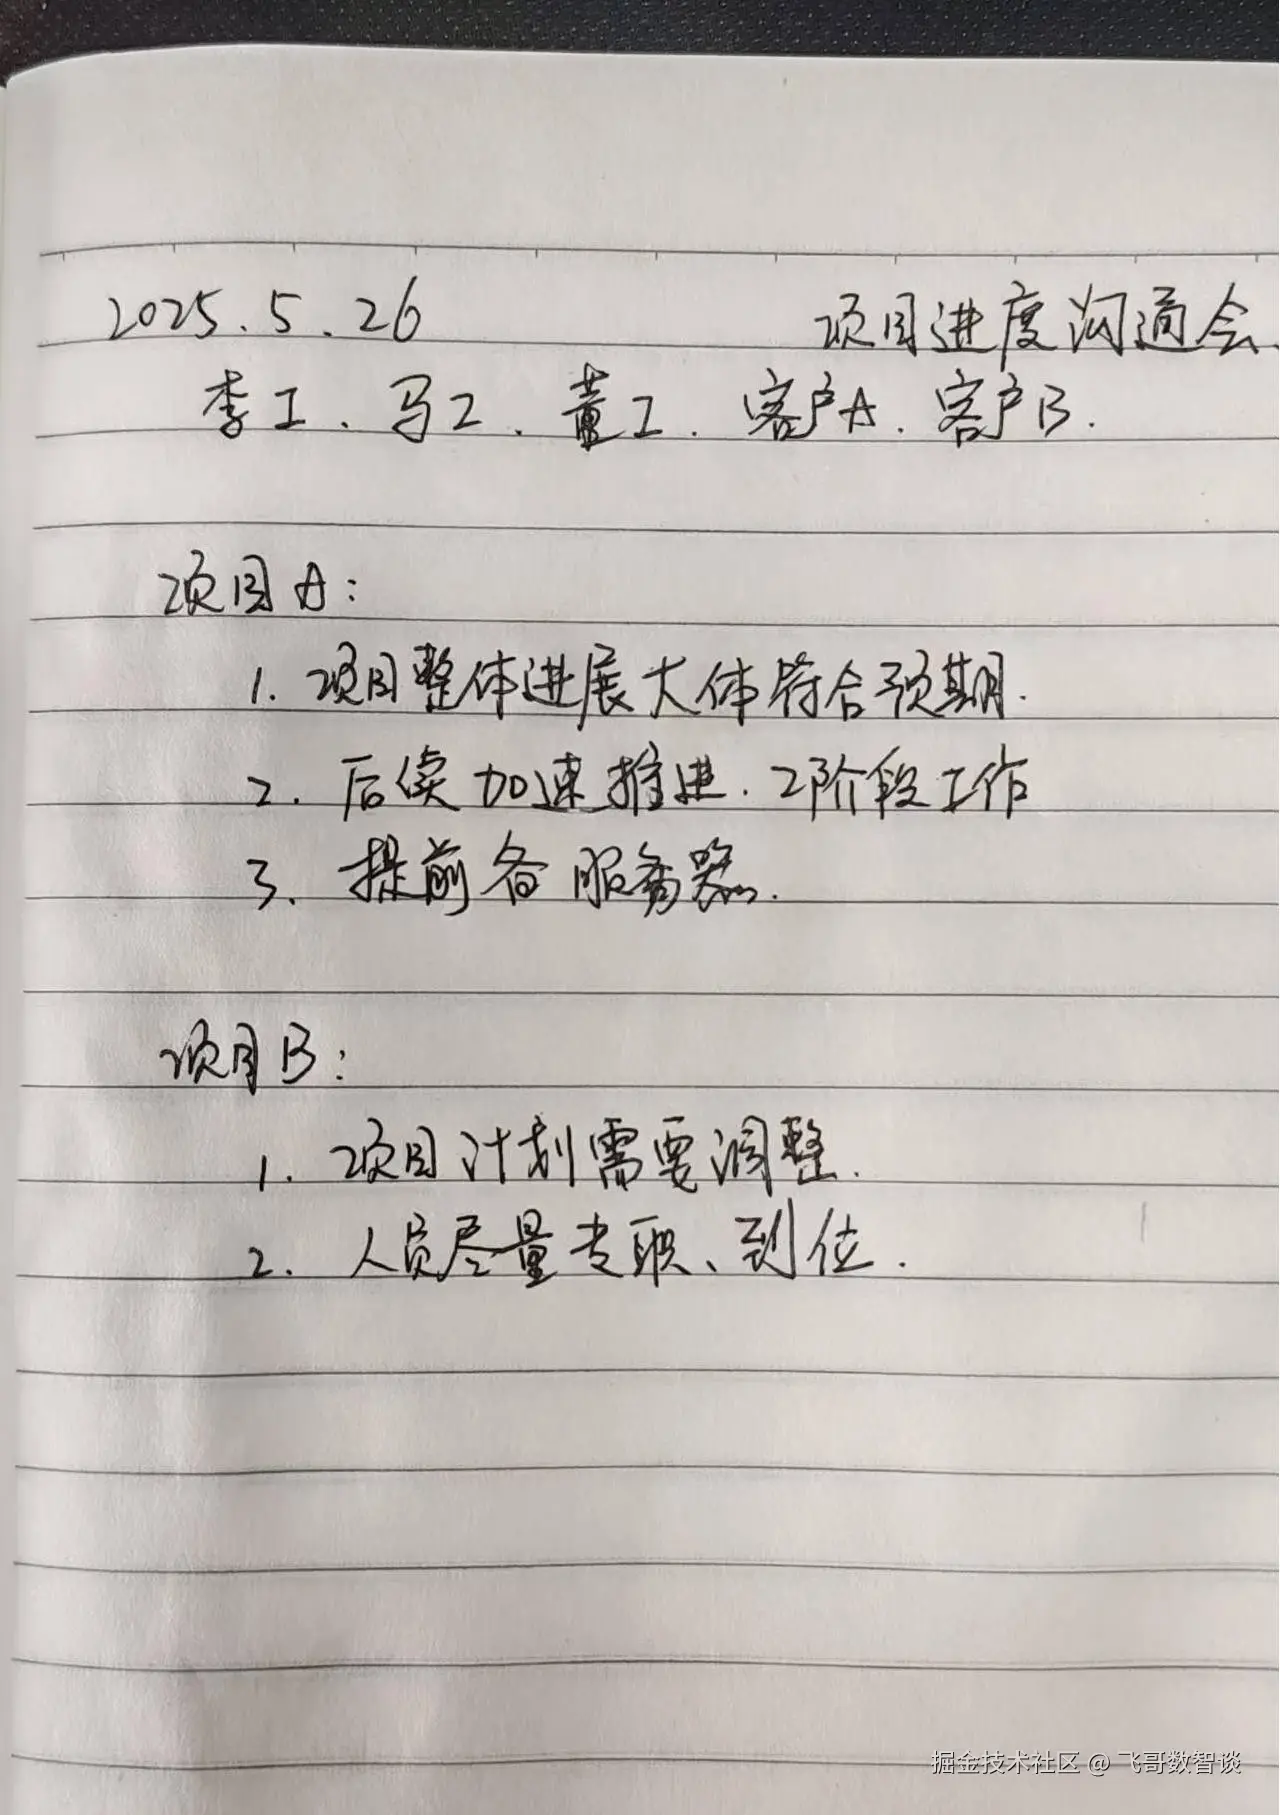 2025.5.26 项目进度沟通会.
李工、马工、董工、客户A、客户B.
项目A:
1. 项目整体进展大体符合预期.
2. 后续加速推进.2阶段工作
3. 提前备服务器.
项目B:
1. 项目计划需要调整.
2. 人员尽量专职、到位.
掘金技术社区 @ 飞哥数智谈